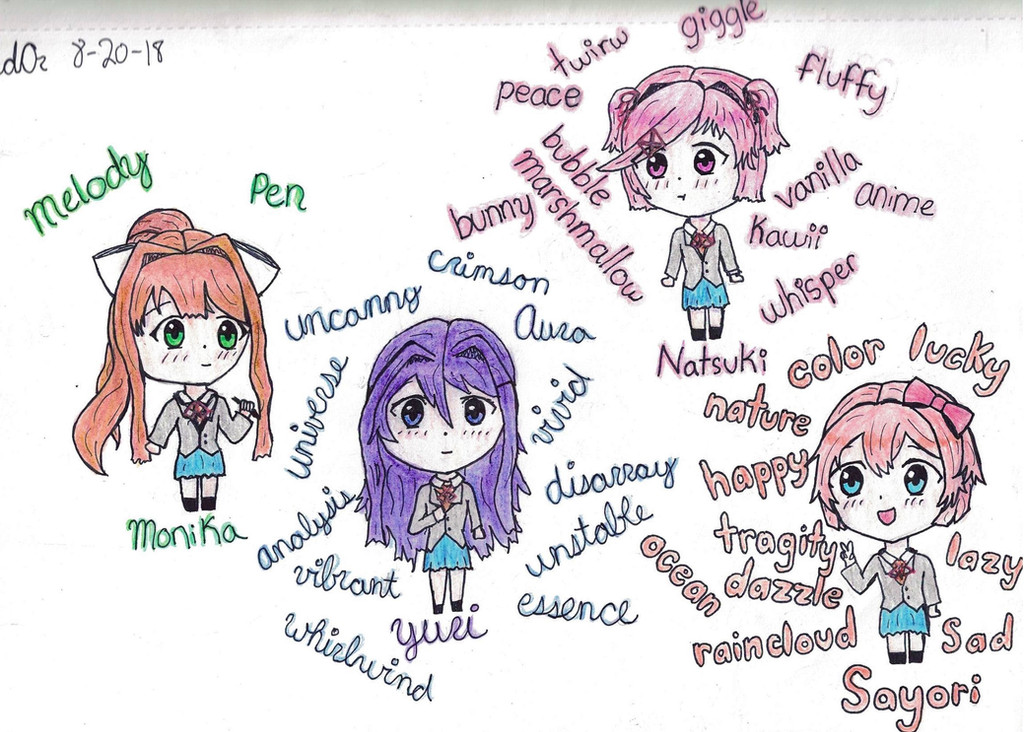 8-20-18
melody
Pen
Monika
uncanny
crimson
Aura
universe
vivid
analysis
disarray
vibrant
unstable
essence
whirlwind
yuri
giggle
twirw
fluffy
peace
bubble
marshmallow
bunny
vanilla
anime
Kawii
whisper
Natsuki
color
lucky
nature
happy
tragity
lazy
ocean
dazzle
raincloud
Sad
Sayori